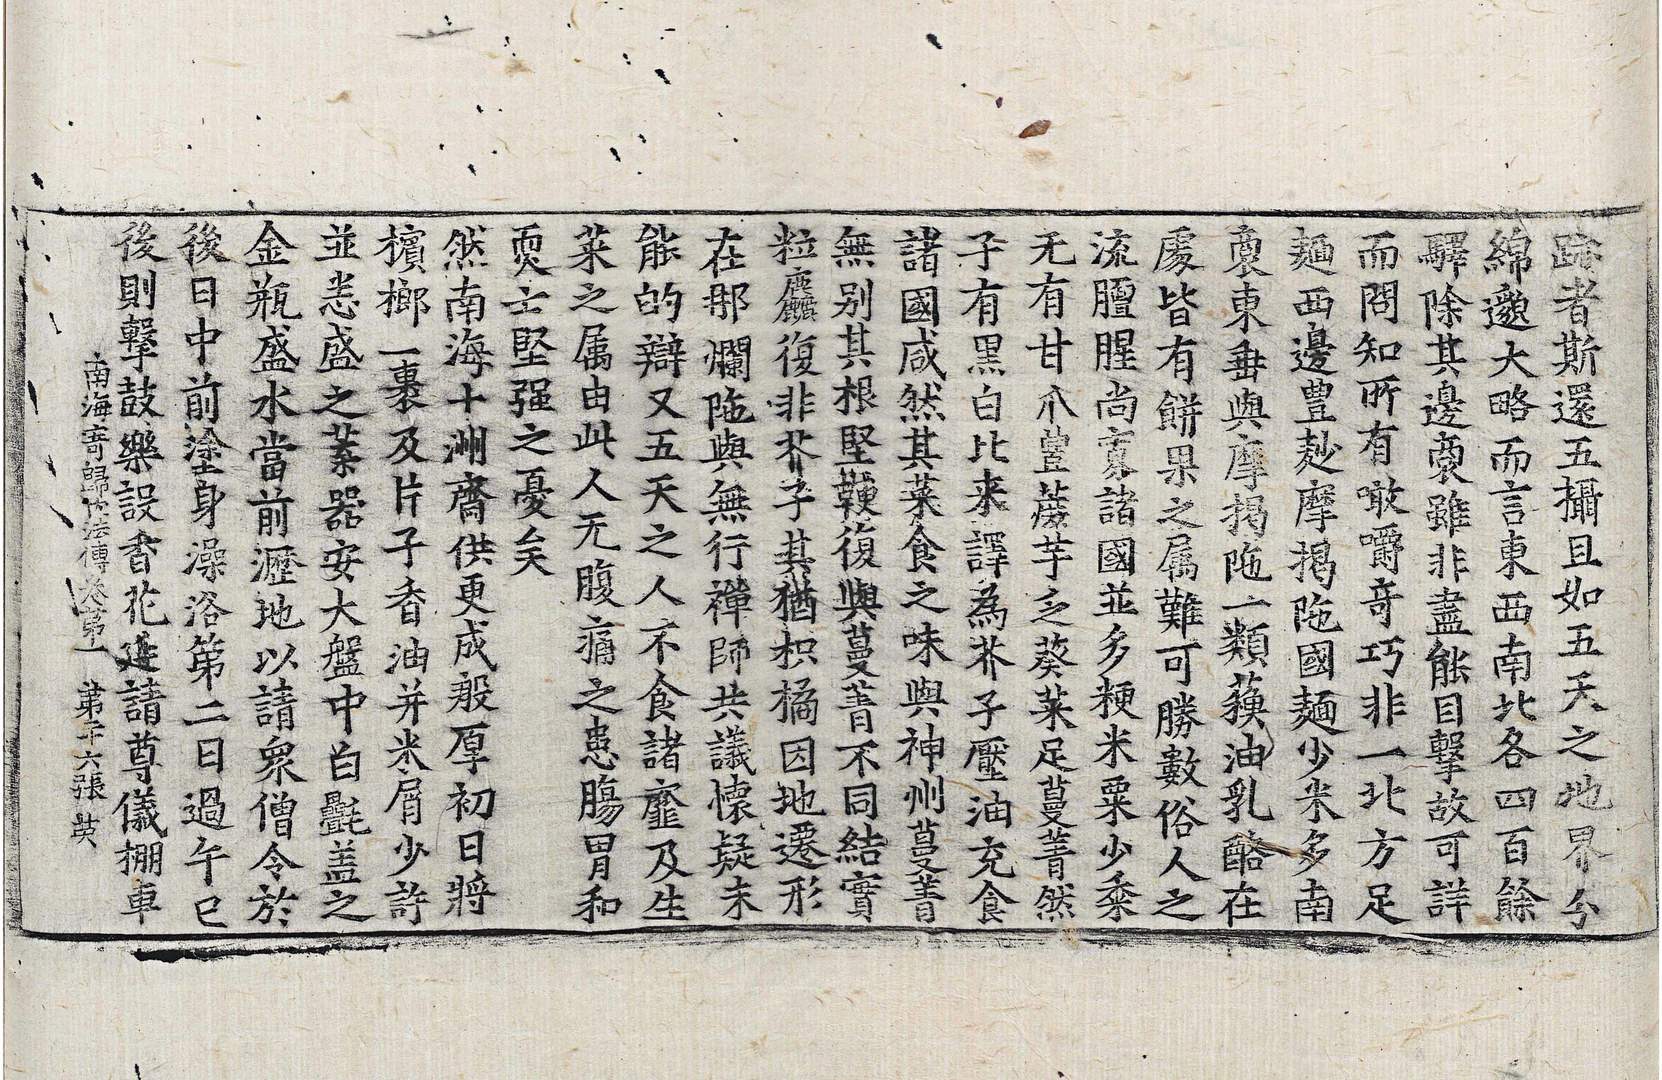 跡者斯還五攝且如五天之地界分
綿邈大略而言東西南北各四百餘
驛除其邊裔雖非盡能目擊故可詳
而問知所有噉嚼奇巧非一北方足
麵西邊豊麨摩揭陁國麵少米多南
裔東垂與摩揭陁一類蘓油乳酪在
處皆有餅果之属難可勝數俗人之
流膻腥尚寡諸國並多粳米粟少黍
无有甘爪豊蔗芋乏葵菜足蔓菁然
子有黑白比来譯為芥子壓油充食
諸國咸然其菜食之味與神州蔓菁
無別其根堅鞭復與蔓菁不同結實
粒麤復非芥子其猶枳橘因地遷形
在那爛陁與無行禪師共議懷疑未
能的辯又五天之人不食諸韲及生
菜之属由此人无腹痛之患腸胃和
耎亡堅强之憂矣
然南海十洲齋供更成殷厚初日將
檳榔一裹及片子香油并米屑少許
並悉盛之葉器安大盤中白㲲盖之
金瓶盛水當前瀝地以請衆僧令於
後日中前塗身澡浴第二日過午已
後則擊鼓樂設香花延請尊儀棚車
南海寄歸內法傳卷第一 第二十六張 英